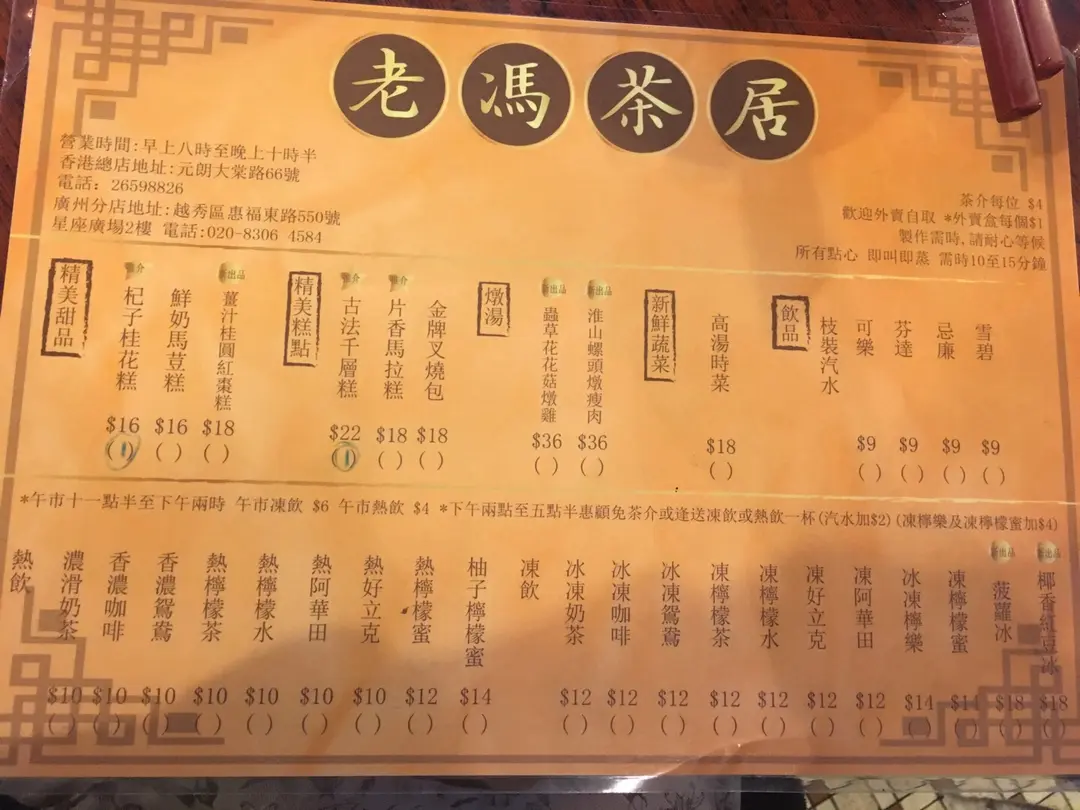 老馮茶居
營業時間:早上八時至晚上十時半
香港總店地址:元朗大棠路66號
電話: 26598826
廣州分店地址:越秀區惠福東路550號
星座廣場2樓 電話:020-8306 4584
茶介每位 $4
歡迎外賣自取 *外賣盒每個$1
製作需時,請耐心等候
所有點心 即叫即蒸 需時10至15分鐘
精美甜品
推介
杞子桂花糕 $16 (1)
鮮奶馬荳糕 $16 ( )
新出品
薑汁桂圓紅棗糕 $18 ( )
精美糕點
推介
古法千層糕 $22 (1)
推介
片香馬拉糕 $18 ( )
金牌叉燒包 $18 ( )
燉湯
新出品
蟲草花花菇燉雞 $36 ( )
新出品
淮山螺頭燉瘦肉 $36 ( )
新鮮蔬菜
高湯時菜 $18 ( )
飲品
枝裝汽水
可樂 $9 ( )
芬達 $9 ( )
忌廉 $9 ( )
雪碧 $9 ( )
*午市十一點半至下午兩時 午市凍飲 $6 午市熱飲 $4 *下午兩點至五點半惠顧免茶介或逢送凍飲或熱飲一杯(汽水加$2)(凍檸樂及凍檸檬蜜加$4)
熱飲
濃滑奶茶 $10 ( )
香濃咖啡 $10 ( )
香濃鴛鴦 $10 ( )
熱檸檬茶 $10 ( )
熱檸檬水 $10 ( )
熱阿華田 $10 ( )
熱好立克 $10 ( )
熱檸檬蜜 $12 ( )
柚子檸檬蜜 $14 ( )
凍飲
冰凍奶茶 $12 ( )
冰凍咖啡 $12 ( )
冰凍鴛鴦 $12 ( )
凍檸檬茶 $12 ( )
凍檸檬水 $12 ( )
凍好立克 $12 ( )
凍阿華田 $12 ( )
冰凍檸樂 $14 ( )
凍檸檬蜜 $14 ( )
新出品
菠蘿冰 $18 ( )
新出品
椰香紅豆冰 $18 ( )